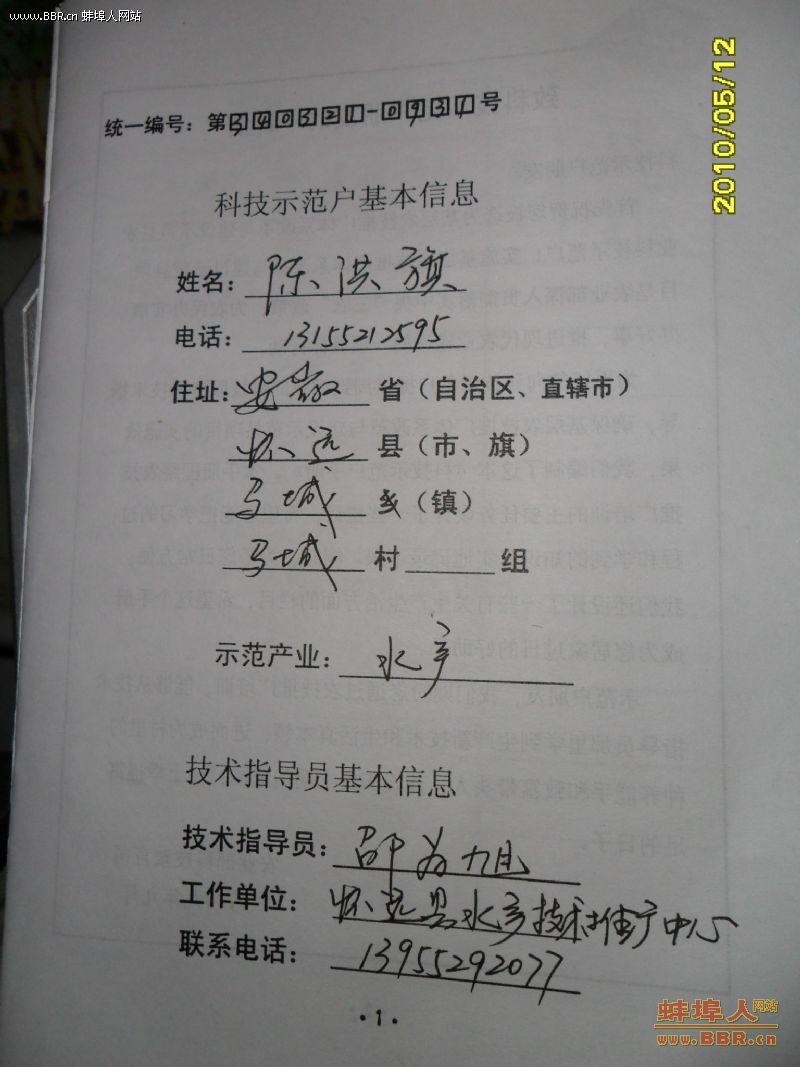 www.BBR.cn 蚌埠人网站
2010/05/12
统一编号：第340321-0931号
科技示范户基本信息
姓名：陈洪旗
电话：13155212595
住址：安徽省（自治区、直辖市）
怀远县（市、旗）
马城乡（镇）
马城村 组
示范产业：水产
技术指导员基本信息
技术指导员：邵为旭
工作单位：怀远县水产技术推广中心
联系电话：13955292077
·1·
蚌埠人网站
www.BBR.cn